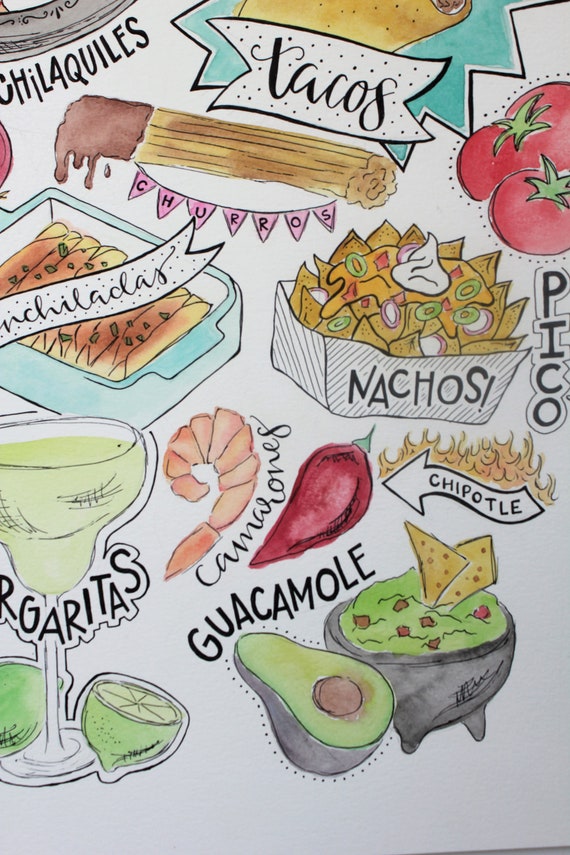 CHILAQUILES
tacos
CHURROS
nchiladas
NACHOS!
PICO
camarones
CHIPOTLE
RGARITAS
GUACAMOLE